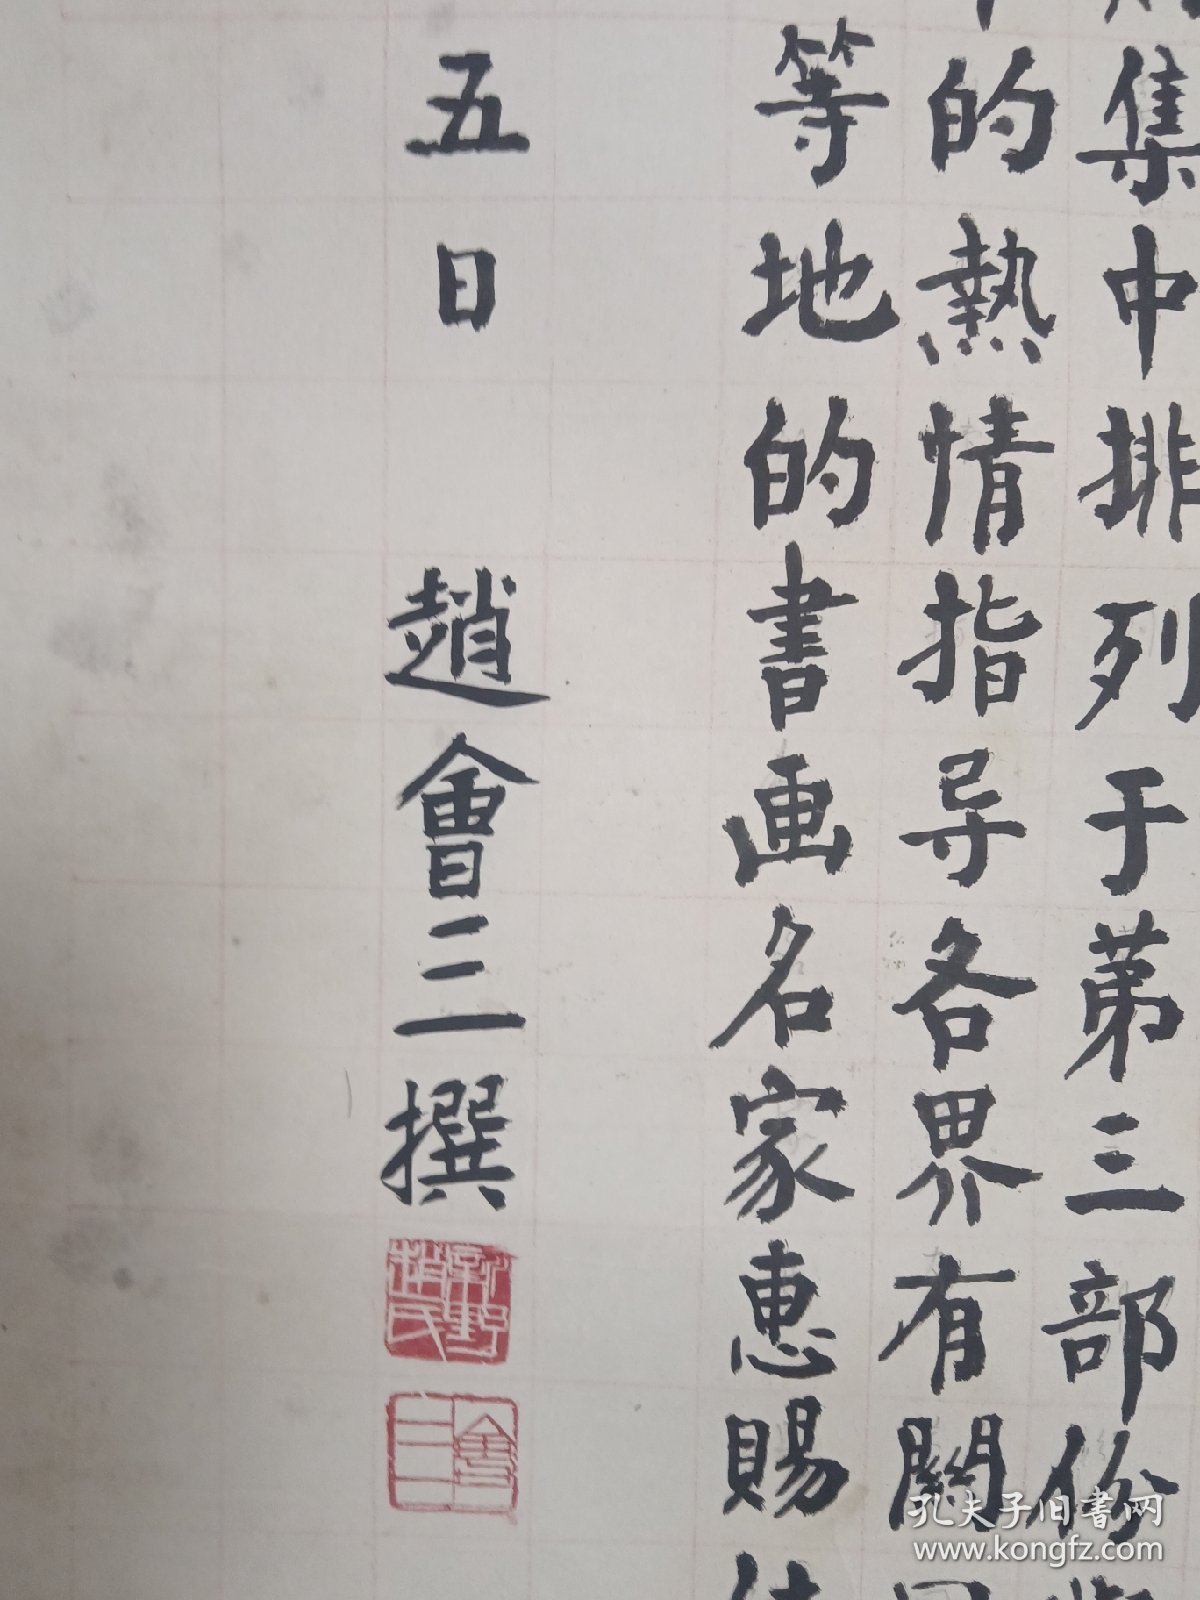 集中排列于第三部份
的熱情指导各界有関
等地的書画名家惠賜
五日 趙會三撰
趙氏
會三
孔夫子旧書网
www.kongfz.com